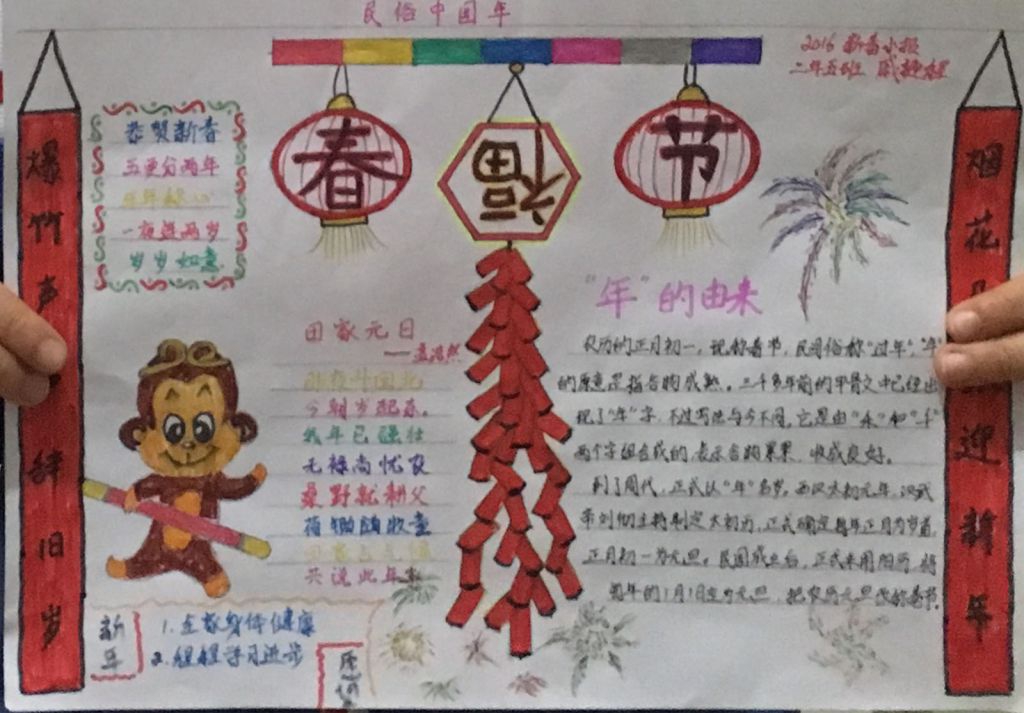 民俗中国年
2016 新春小报
二年五班
爆竹声 辞旧岁
恭贺新春
五更分两年
一夜连两岁
岁岁如意
春
福
节
田家元日
——孟浩然
昨夜斗回北
今朝岁起东。
我年已强壮
无禄尚忧农
桑野就耕父
荷锄随牧童
共说此年丰
"年"的由来
农历的正月初一,现称春节,民间俗称"过年","年"
的原意是指谷物成熟。三千多年前的甲骨文中已经出
现了"年"字,不过写法与今不同,它是由"禾"和"千"
两个字组合成的,表示谷物累累,收成良好。
到了周代,正式以"年"名岁。西汉太初元年,汉武
帝刘彻主持制定太初历,正式确定每年正月为岁首,
正月初一为元旦。民国成立后,正式采用阳历,将
每年的1月1日定为元旦,把农历元旦改称春节。
烟花 迎新年
新年
愿望
1. 全家身体健康
2. 程程学习进步